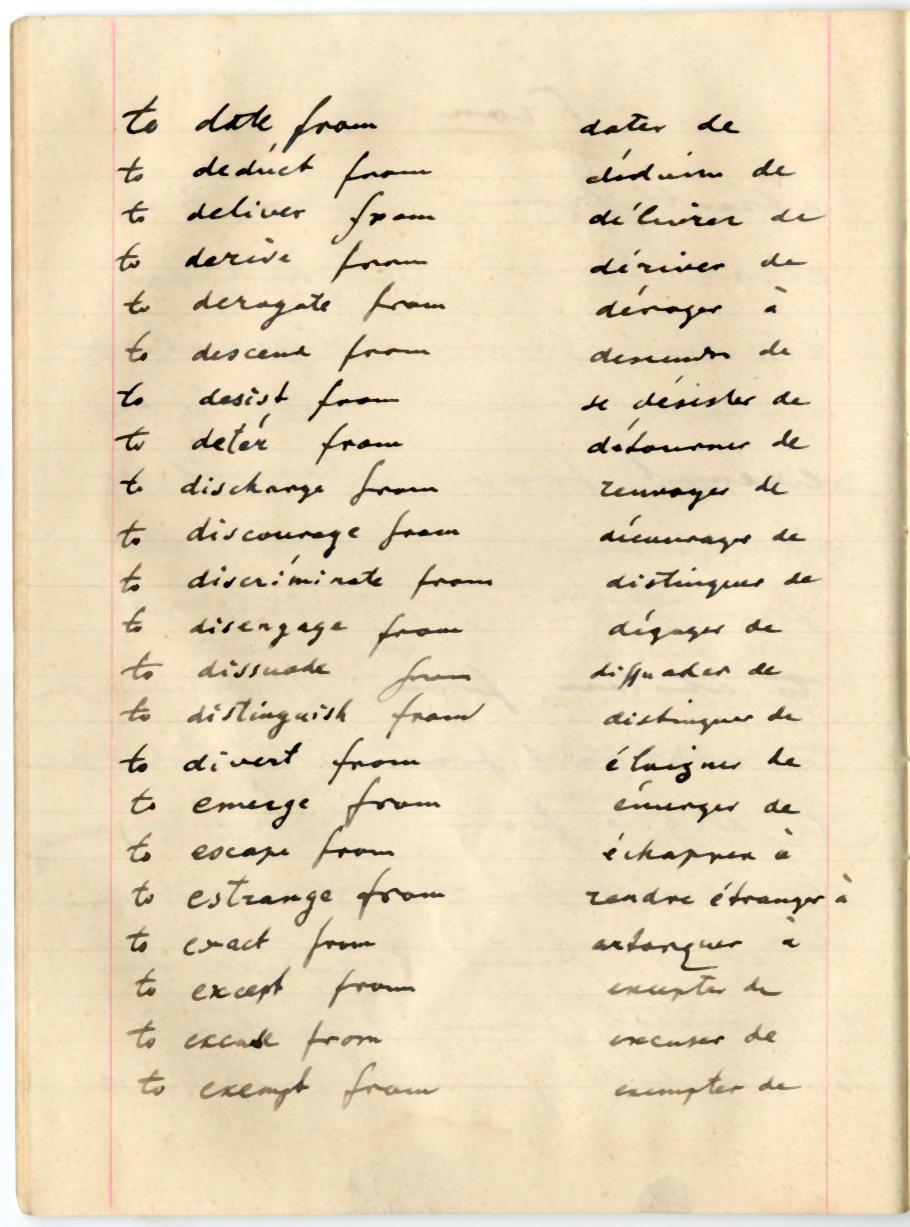 to date from dater de
to dedúct from déduire de
to deliver from délivrer de
to derive from dériver de
to derogate from déroger à
to descend from descendre de
to desist from se désister de
to detér from détourner de
to discharge from renvoyer de
to discourage from décourager de
to discríminate from distinguer de
to disengage from dégager de
to dissuade from dissuader de
to distinguish from distinguer de
to divert from éloigner de
to emerge from émerger de
to escape from échapper à
to estrange from rendre étranger à
to exact from extorquer à
to except from excepter de
to excuse from excuser de
to exempt from exempter de